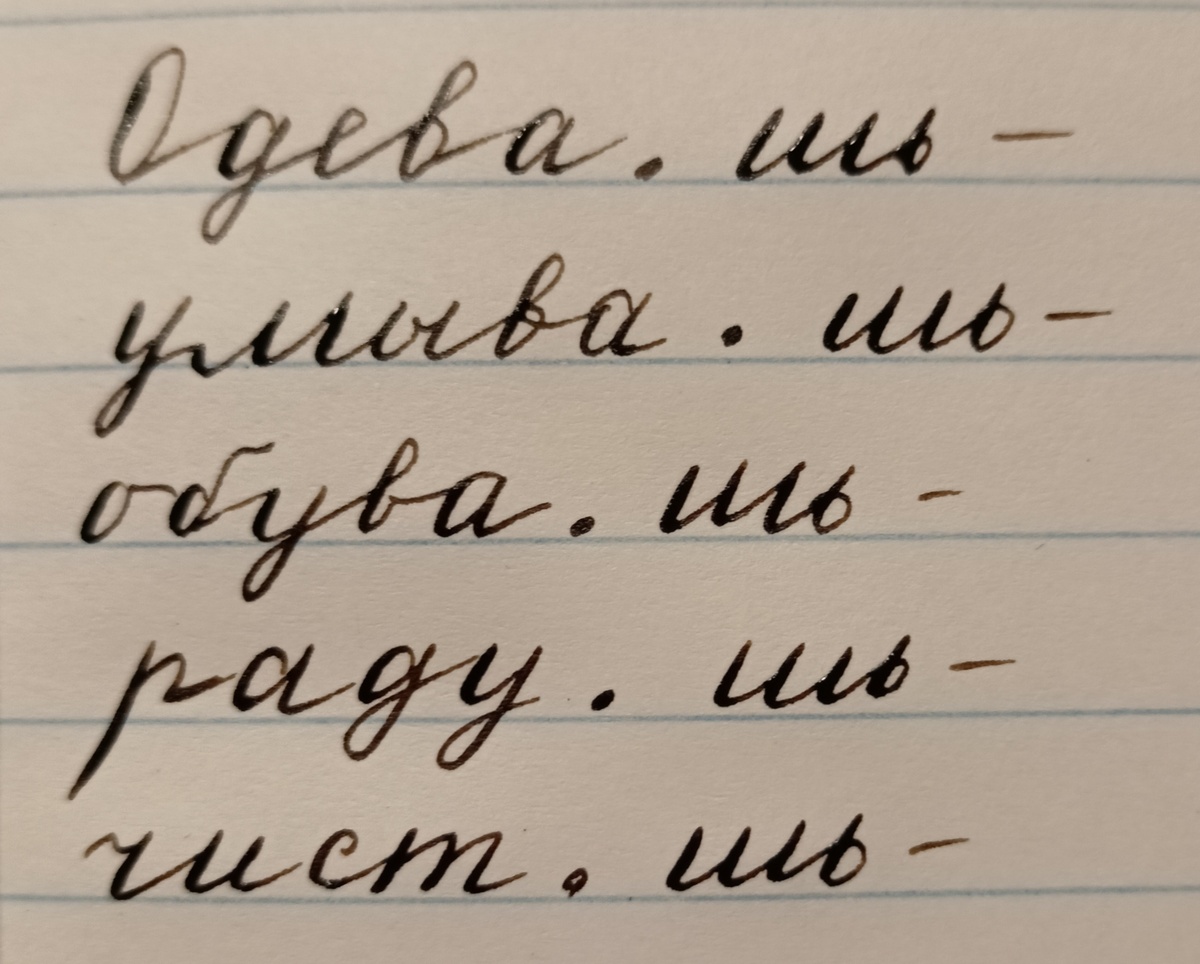 Одева. шь –
умыва. шь –
обува. шь –
раду. шь –
чист. шь –